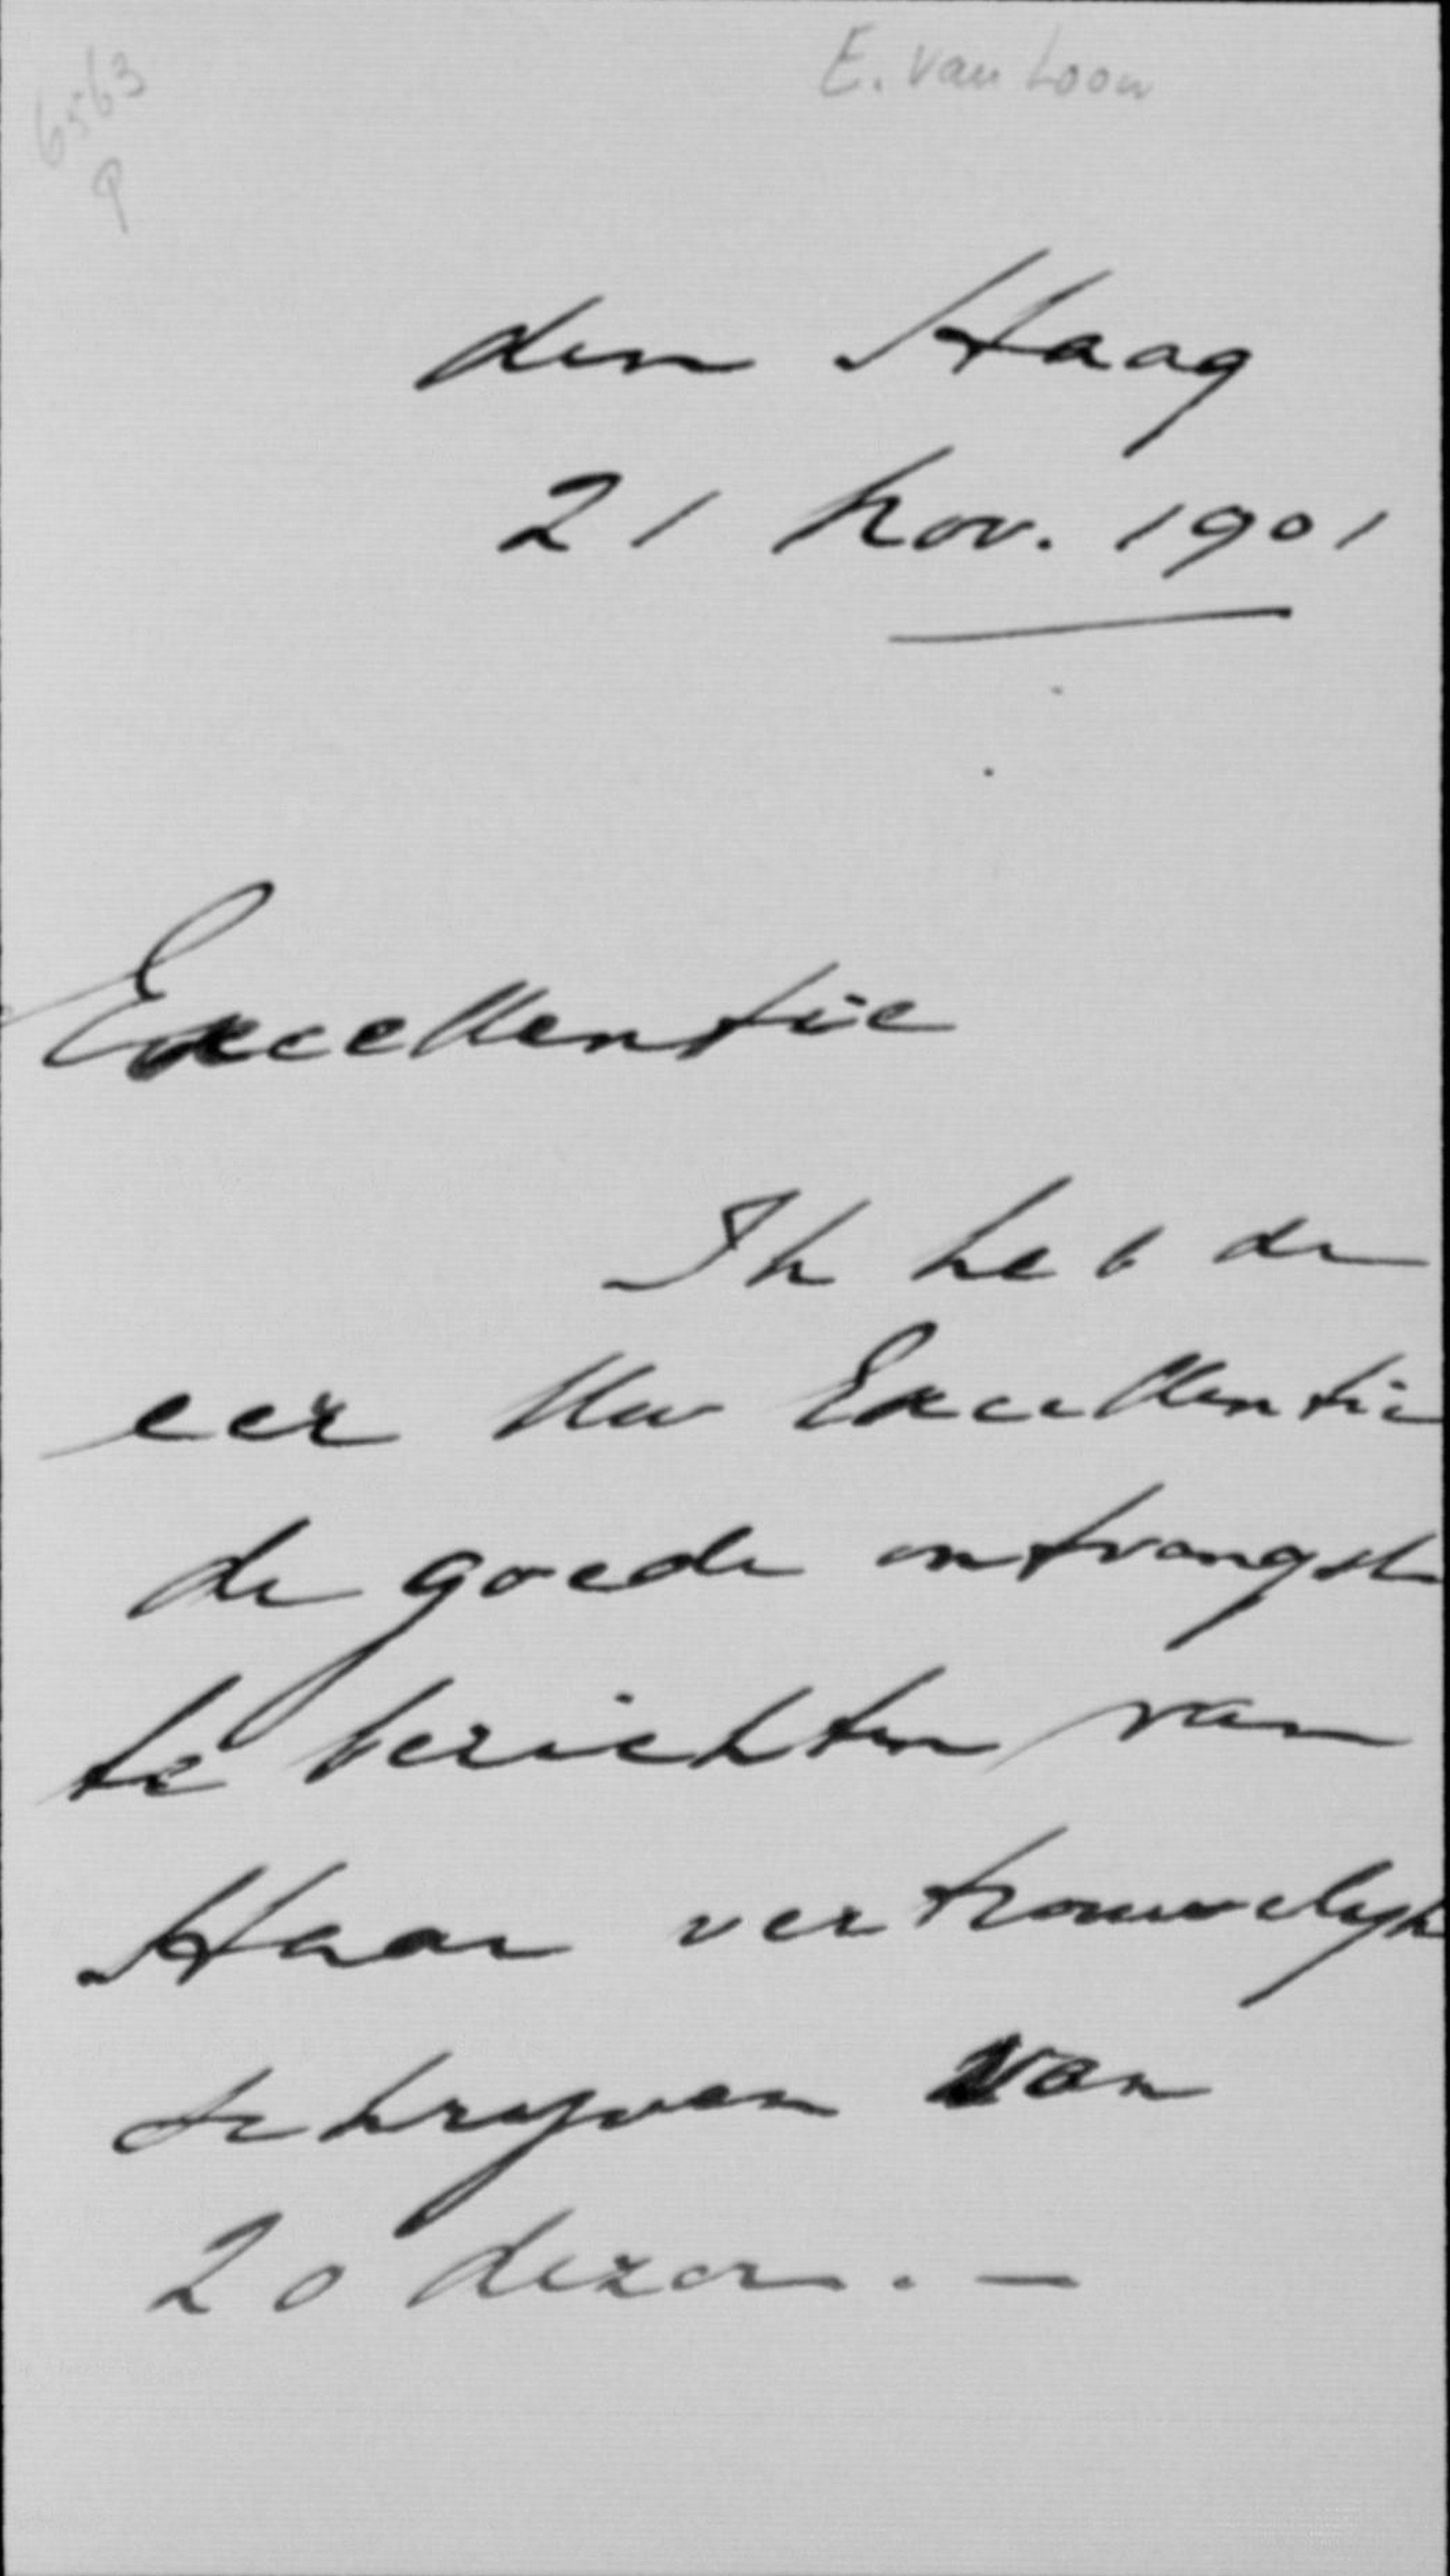 6563
E. van Loon
den Haag
21 Nov. 1901
Excellentie
Ik heb de
eer Uw Excellentie
de goede ontvangst
te berichten van
Haar vertrouwelijk
schrijven van
20 dezer. —